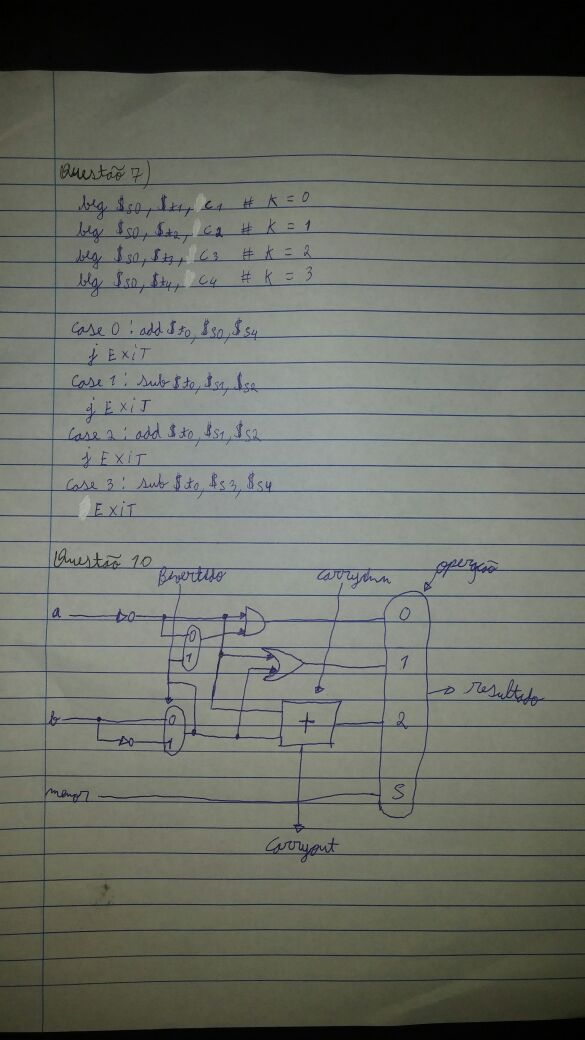 Questão 7)
beq $s0, $t1, C1 # K = 0
beq $s0, $t2, C2 # K = 1
beq $s0, $t3, C3 # K = 2
beq $s0, $t4, C4 # K = 3
Case 0 : add $t0, $s0, $s4
j ExiT
Case 1 : sub $t0, $s1, $s2
j ExiT
Case 2 : add $t0, $s1, $s2
j ExiT
Case 3 : sub $t0, $s3, $s4
ExiT
Questão 10
Binvertido
Carryin
operção
a
0
0
1
1
resultado
b
0
1
+
2
menor
S
Carryout